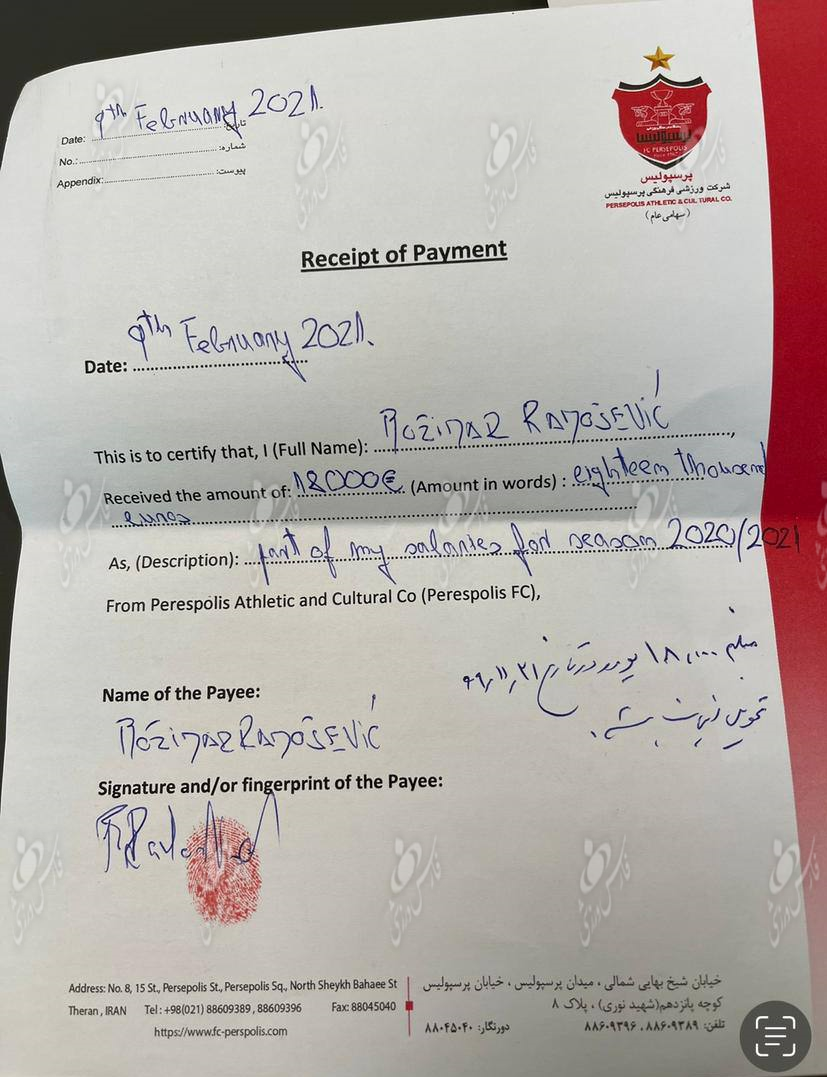 9th February 2021.
Date: تاریخ:
No.: شماره:
Appendix: پیوست:
پرسپولیس
FC PERSEPOLIS
پرسپولیس
شرکت ورزشی فرهنگی پرسپولیس
PERSEPOLIS ATHLETIC & CULTURAL CO.
(سهامی عام)
Receipt of Payment
Date: 9th February 2021.
This is to certify that, I (Full Name): BOŽIDAR RADOŠEVIĆ,
Received the amount of: 18000€ (Amount in words) : eighteen thousand
euros
As, (Description): part of my salaries for season 2020/2021
From Perespolis Athletic and Cultural Co (Perespolis FC),
مبلغ ۱۸٫۰۰۰ یورو در تاریخ ۹۹٫۱۱٫۲۱
تحویل شد.
Name of the Payee:
BOŽIDAR RADOŠEVIĆ
Signature and/or fingerprint of the Payee:
Address: No. 8, 15 St., Persepolis St., Persepolis Sq., North Sheykh Bahaee St
Theran , IRAN Tel : +98(021) 88609389 , 88609396 Fax: 88045040
https://www.fc-perspolis.com
خیابان شیخ بهایی شمالی ، میدان پرسپولیس ، خیابان پرسپولیس
کوچه پانزدهم(شهید نوری) ، پلاک ۸
تلفن: ۸۸۶۰۹۳۸۹ ، ۸۸۶۰۹۳۹۶ دورنگار: ۸۸۰۴۵۰۴۰